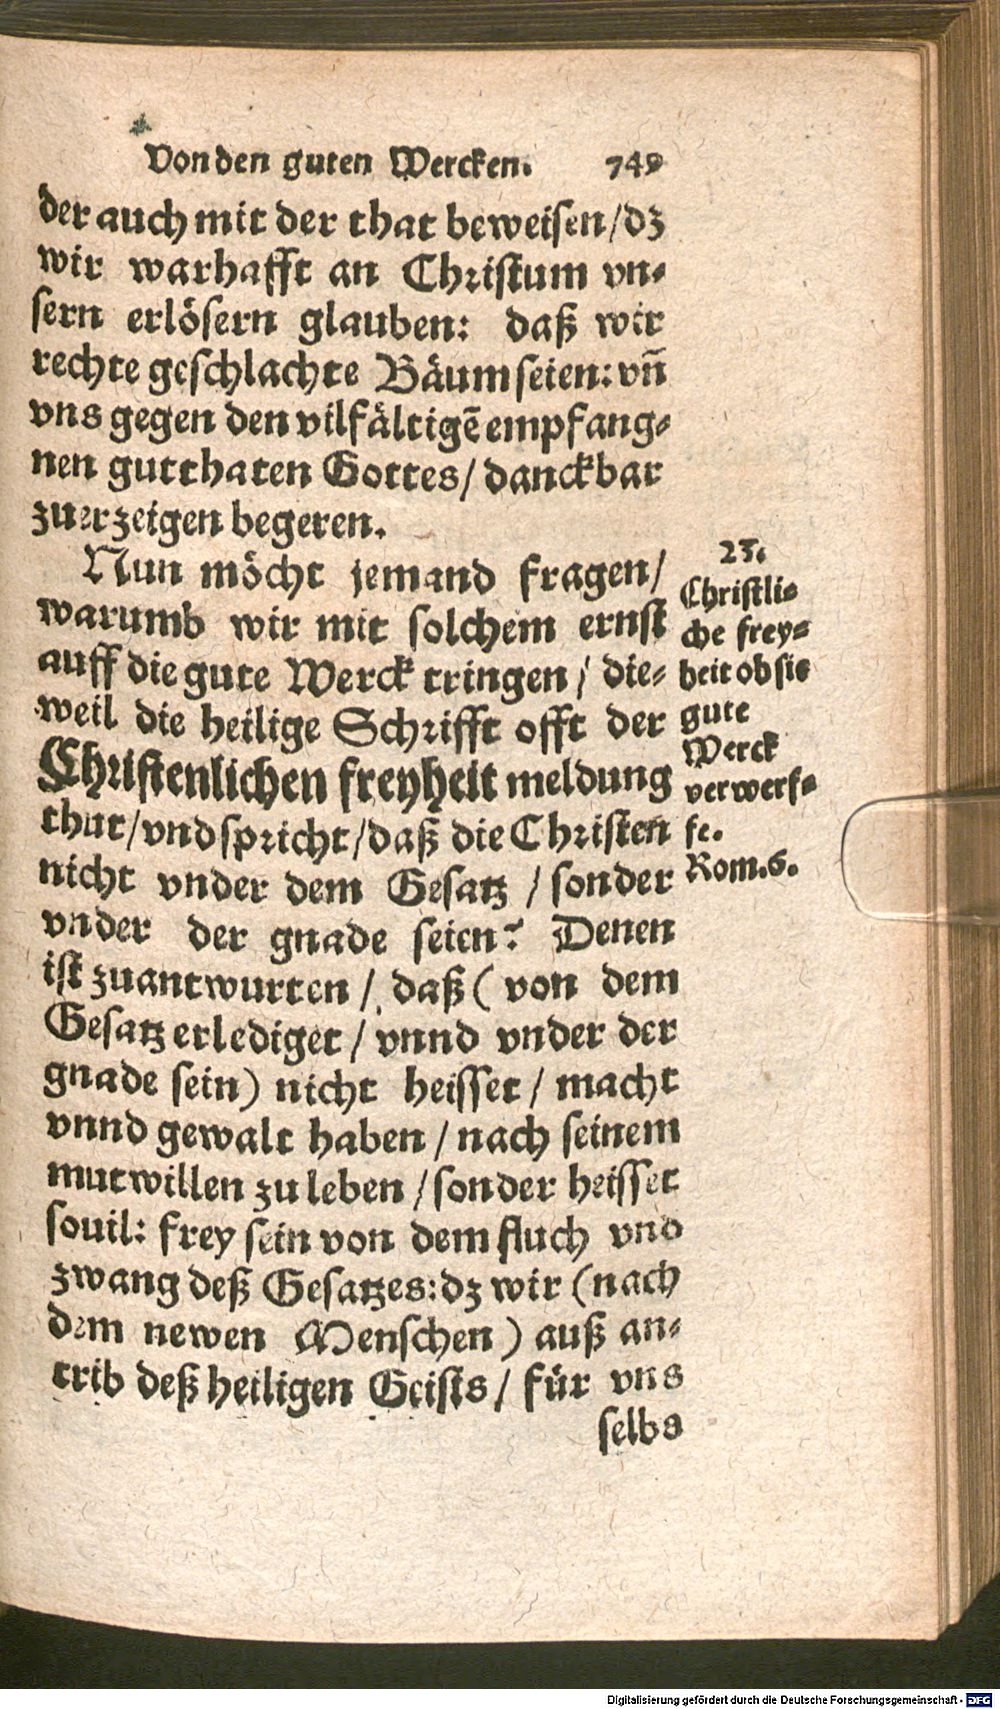 Von den guten Wercken. 749
der auch mit der that beweisen/dz
wir warhafft an Christum vn⸗
sern erlösern glauben: daß wir
rechte geschlachte Bäum seien: vñ
vns gegen den vilfältigē empfang⸗
nen gutthaten Gottes/ danckbar
zuerzeigen begeren.
Nun möcht jemand fragen/
warumb wir mit solchem ernst
auff die gute Werck tringen/ die⸗
weil die heilige Schrifft offt der
Christenlichen freyheit meldung
thut/vnd spricht/daß die Christen
nicht vnder dem Gesatz /sonder
vnder der gnade seien? Denen
ist zuantwurten/ daß (von dem
Gesatz erlediget/ vnnd vnder der
gnade sein) nicht heisset/ macht
vnnd gewalt haben/nach seinem
mutwillen zu leben/sonder heisset
souil: frey sein von dem fluch vnd
zwang deß Gesatzes: dz wir (nach
dem newen Menschen) auß an⸗
trib deß heiligen Geists/ für vns
selbs
23.
Christli⸗
che frey⸗
heit ob sie
gute
Werck
verwerf⸗
fe.
Rom.6.
Digitalisierung gefördert durch die Deutsche Forschungsgemeinschaft - DFG